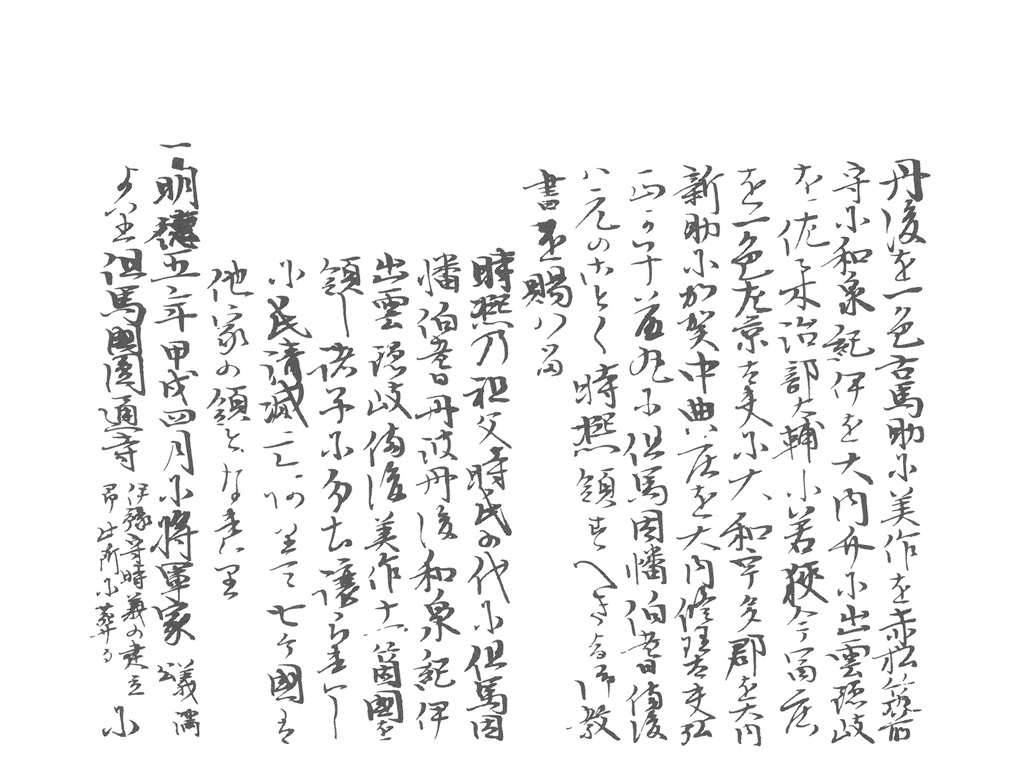 丹後を一色右馬助に美作を赤松筑前
守に和泉紀伊を大内介に出雲隠岐
を佐々木治部大輔に若狭今富庄
を一色左京大夫に大和宇多郡を大内
新助に加賀中曲の庄を大内修理大夫弘
正に但馬因幡伯耆備後
ハ元のことく時熙領すへきよる御教
書を賜ハる
時熙乃祖父時氏の代に但馬因
幡伯耆丹波丹後和泉紀伊
出雲隠岐備後美作十一箇國を
領し諸子に分ち譲られし
に氏清滅亡七ケ國は
他家の領となれり
一明徳五年甲戌四月に将軍家義満公
より但馬國圓通寺伊豫守時義の建立即此所に葬るに